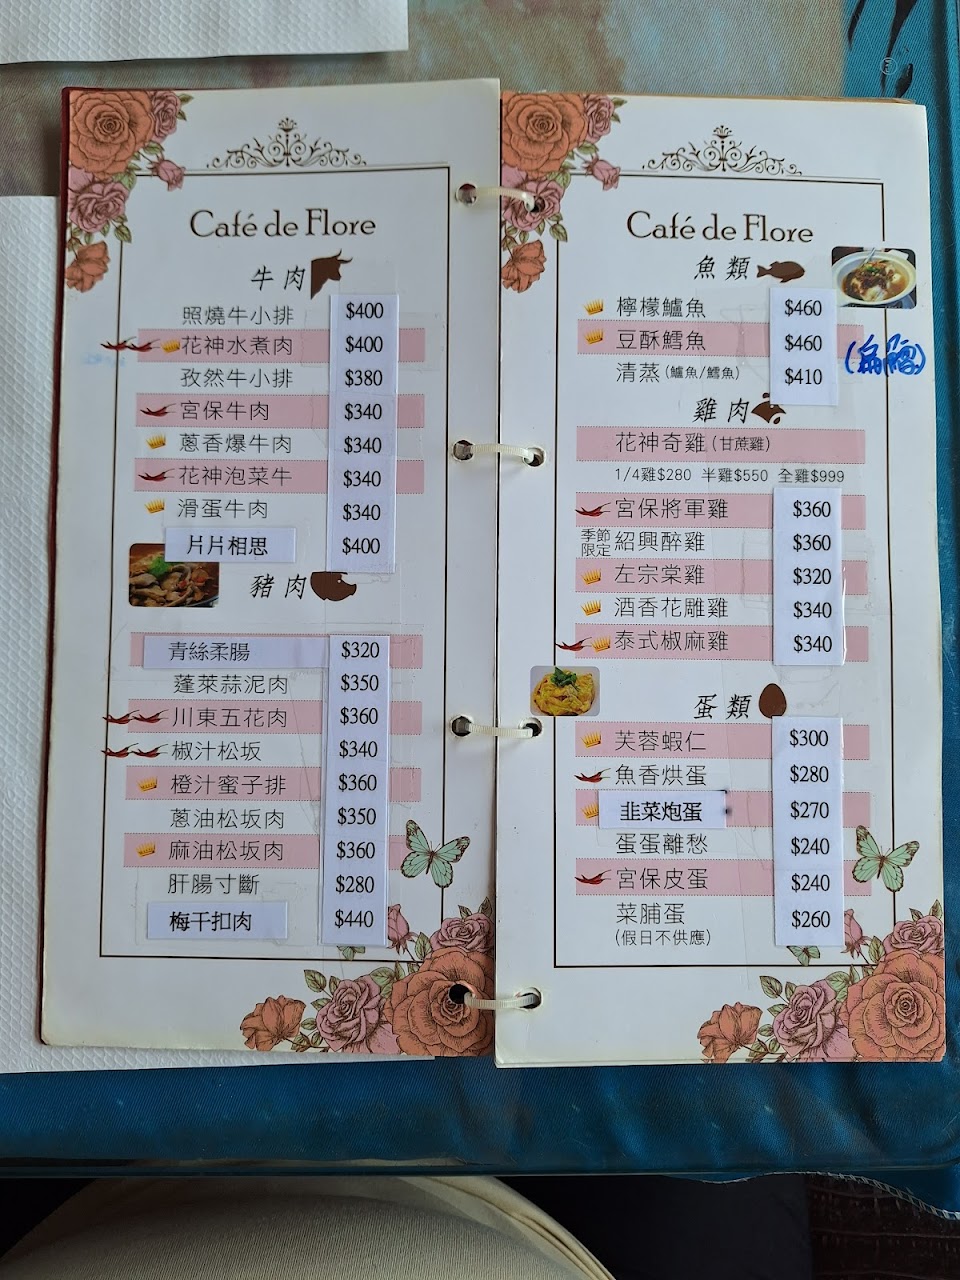 Café de Flore
牛肉
照燒牛小排 $400
花神水煮肉 $400
孜然牛小排 $380
宮保牛肉 $340
蔥香爆牛肉 $340
花神泡菜牛 $340
滑蛋牛肉 $340
片片相思 $400
豬肉
青絲柔腸 $320
蓬萊蒜泥肉 $350
川東五花肉 $360
椒汁松坂 $340
橙汁蜜子排 $360
蔥油松坂肉 $350
麻油松坂肉 $360
肝腸寸斷 $280
梅干扣肉 $440
Café de Flore
魚類
檸檬鱸魚 $460
豆酥鱈魚 $460
清蒸(鱸魚/鱈魚) $410
雞肉
花神奇雞(甘蔗雞)
1/4雞$280 半雞$550 全雞$999
宮保將軍雞 $360
季節限定 紹興醉雞 $360
左宗棠雞 $320
酒香花雕雞 $340
泰式椒麻雞 $340
蛋類
芙蓉蝦仁 $300
魚香烘蛋 $280
韭菜炮蛋 $270
蛋蛋離愁 $240
宮保皮蛋 $240
菜脯蛋 $260
(假日不供應)